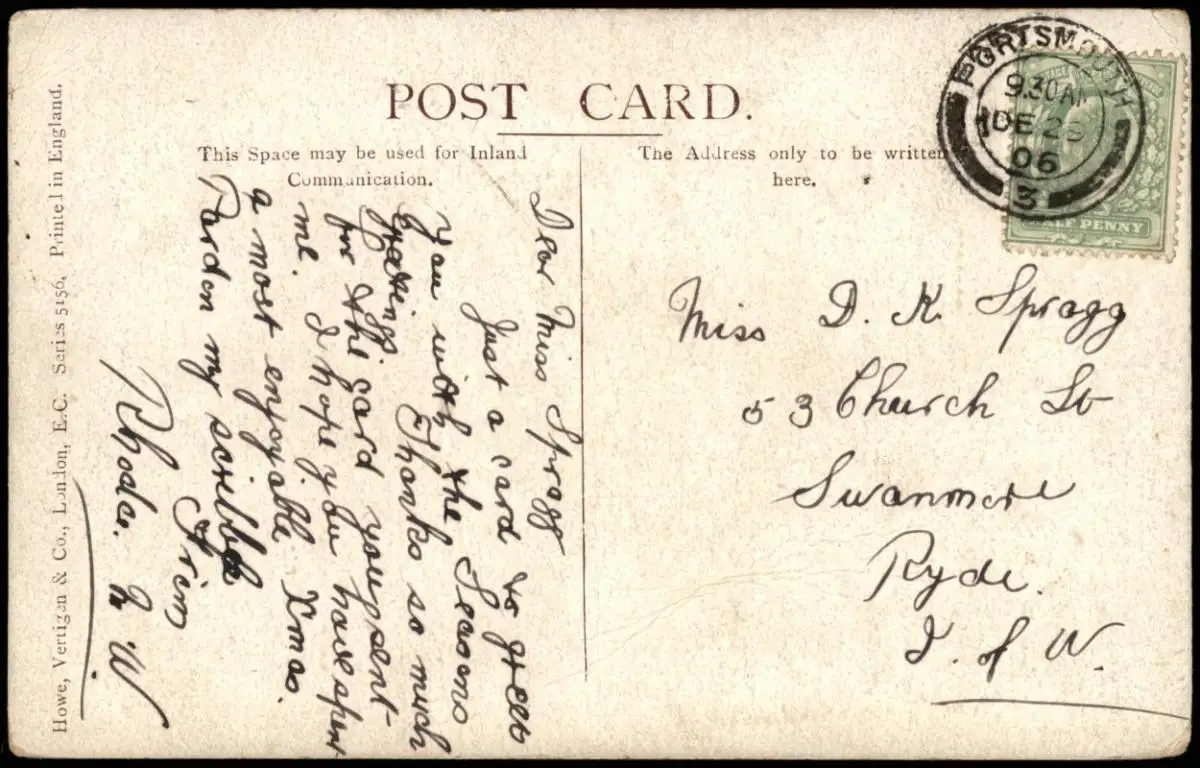 POST CARD.
This Space may be used for Inland
Communication.
The Address only to be written
here.
PORTSMOUTH
9.30 AM
DE 26
06
3
HALF PENNY
Dear Miss Spragg
Just a card to greet
you with the Seasons
Greetings Thanks so much
for the card you sent
me. I hope you have spent
a most enjoyable Xmas.
Pardon my scribble
From
Rhoda. W
Miss D. K. Spragg
53 Church St
Swanmore
Ryde.
I. of W.
Howe, Vertigen & Co., London, E.C. Series 5156. Printed in England.